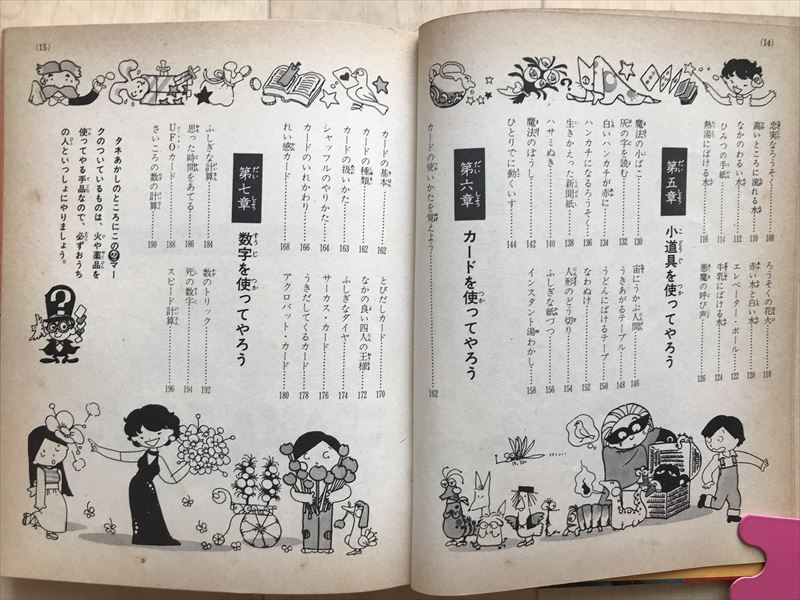 (14)
忠実なろうそく……108
高いところに流れる水……110
なかのわるい水……112
ひみつの手紙……114
熱湯にばける水……116
ろうそくの花火……118
赤い水と白い水……120
エレベーター・ボール……122
牛乳にばける水……124
悪魔の呼び声……126
第五章 小道具を使ってやろう
魔法の小ばこ……130
灰の字を読む……132
白いハンカチが赤に……134
ハンカチになるろうそく……136
生きかえった新聞紙……138
ハサミぬき……140
魔法のぼうし……142
ひとりでに動くいす……144
宙にうかぶ人間……146
うきあがるテーブル……148
うどんにばけるテープ……150
なわぬけ……152
人形のどう切り……154
ふしぎな紙づつ……156
インスタント湯わかし……158
第六章 カードを使ってやろう
カードの使いかたを覚えよう……162
(15)
カードの基本……162
カードの種類……162
カードの扱いかた……163
シャッフルのやりかた……164
カードのいれかわり……166
れい感カード……168
とびだしカード……170
なかの良い四人の王様……172
ふしぎなダイヤ……174
サーカス・カード……176
うきだしてくるカード……178
アクロバット・カード……180
第七章 数字を使ってやろう
ふしぎな計算……184
思った時間をあてる……186
UFOカード……188
さいころの数の計算……190
数のトリック……192
死の数字……194
スピード計算……196
タネあかしのところにこのマー
クのついているものは、火や薬品を
使ってやる手品なので、必ずおうち
の人といっしょにやりましょう。
?